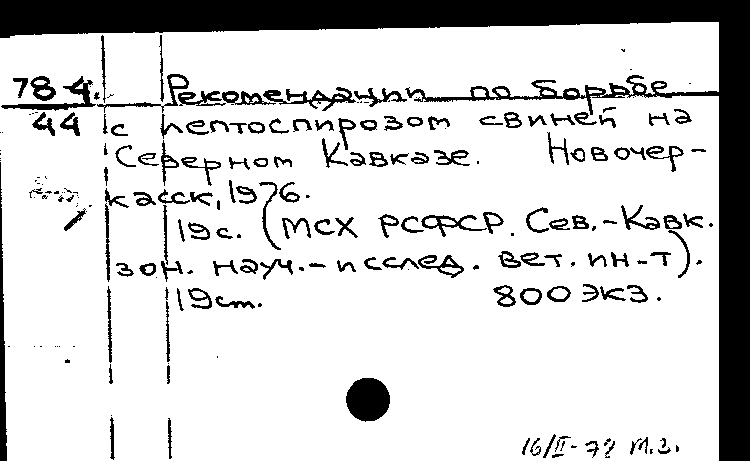 78-4. Рекомендации по борьбе
44 с лептоспирозом свиней на
Северном Кавказе. Новочер-
касск, 1976.
19с. (МСХ РСФСР. Сев.-Кавк.
зон. науч.-исслед. вет. ин-т).
19см. 800 экз.
16/II-78 м.з.